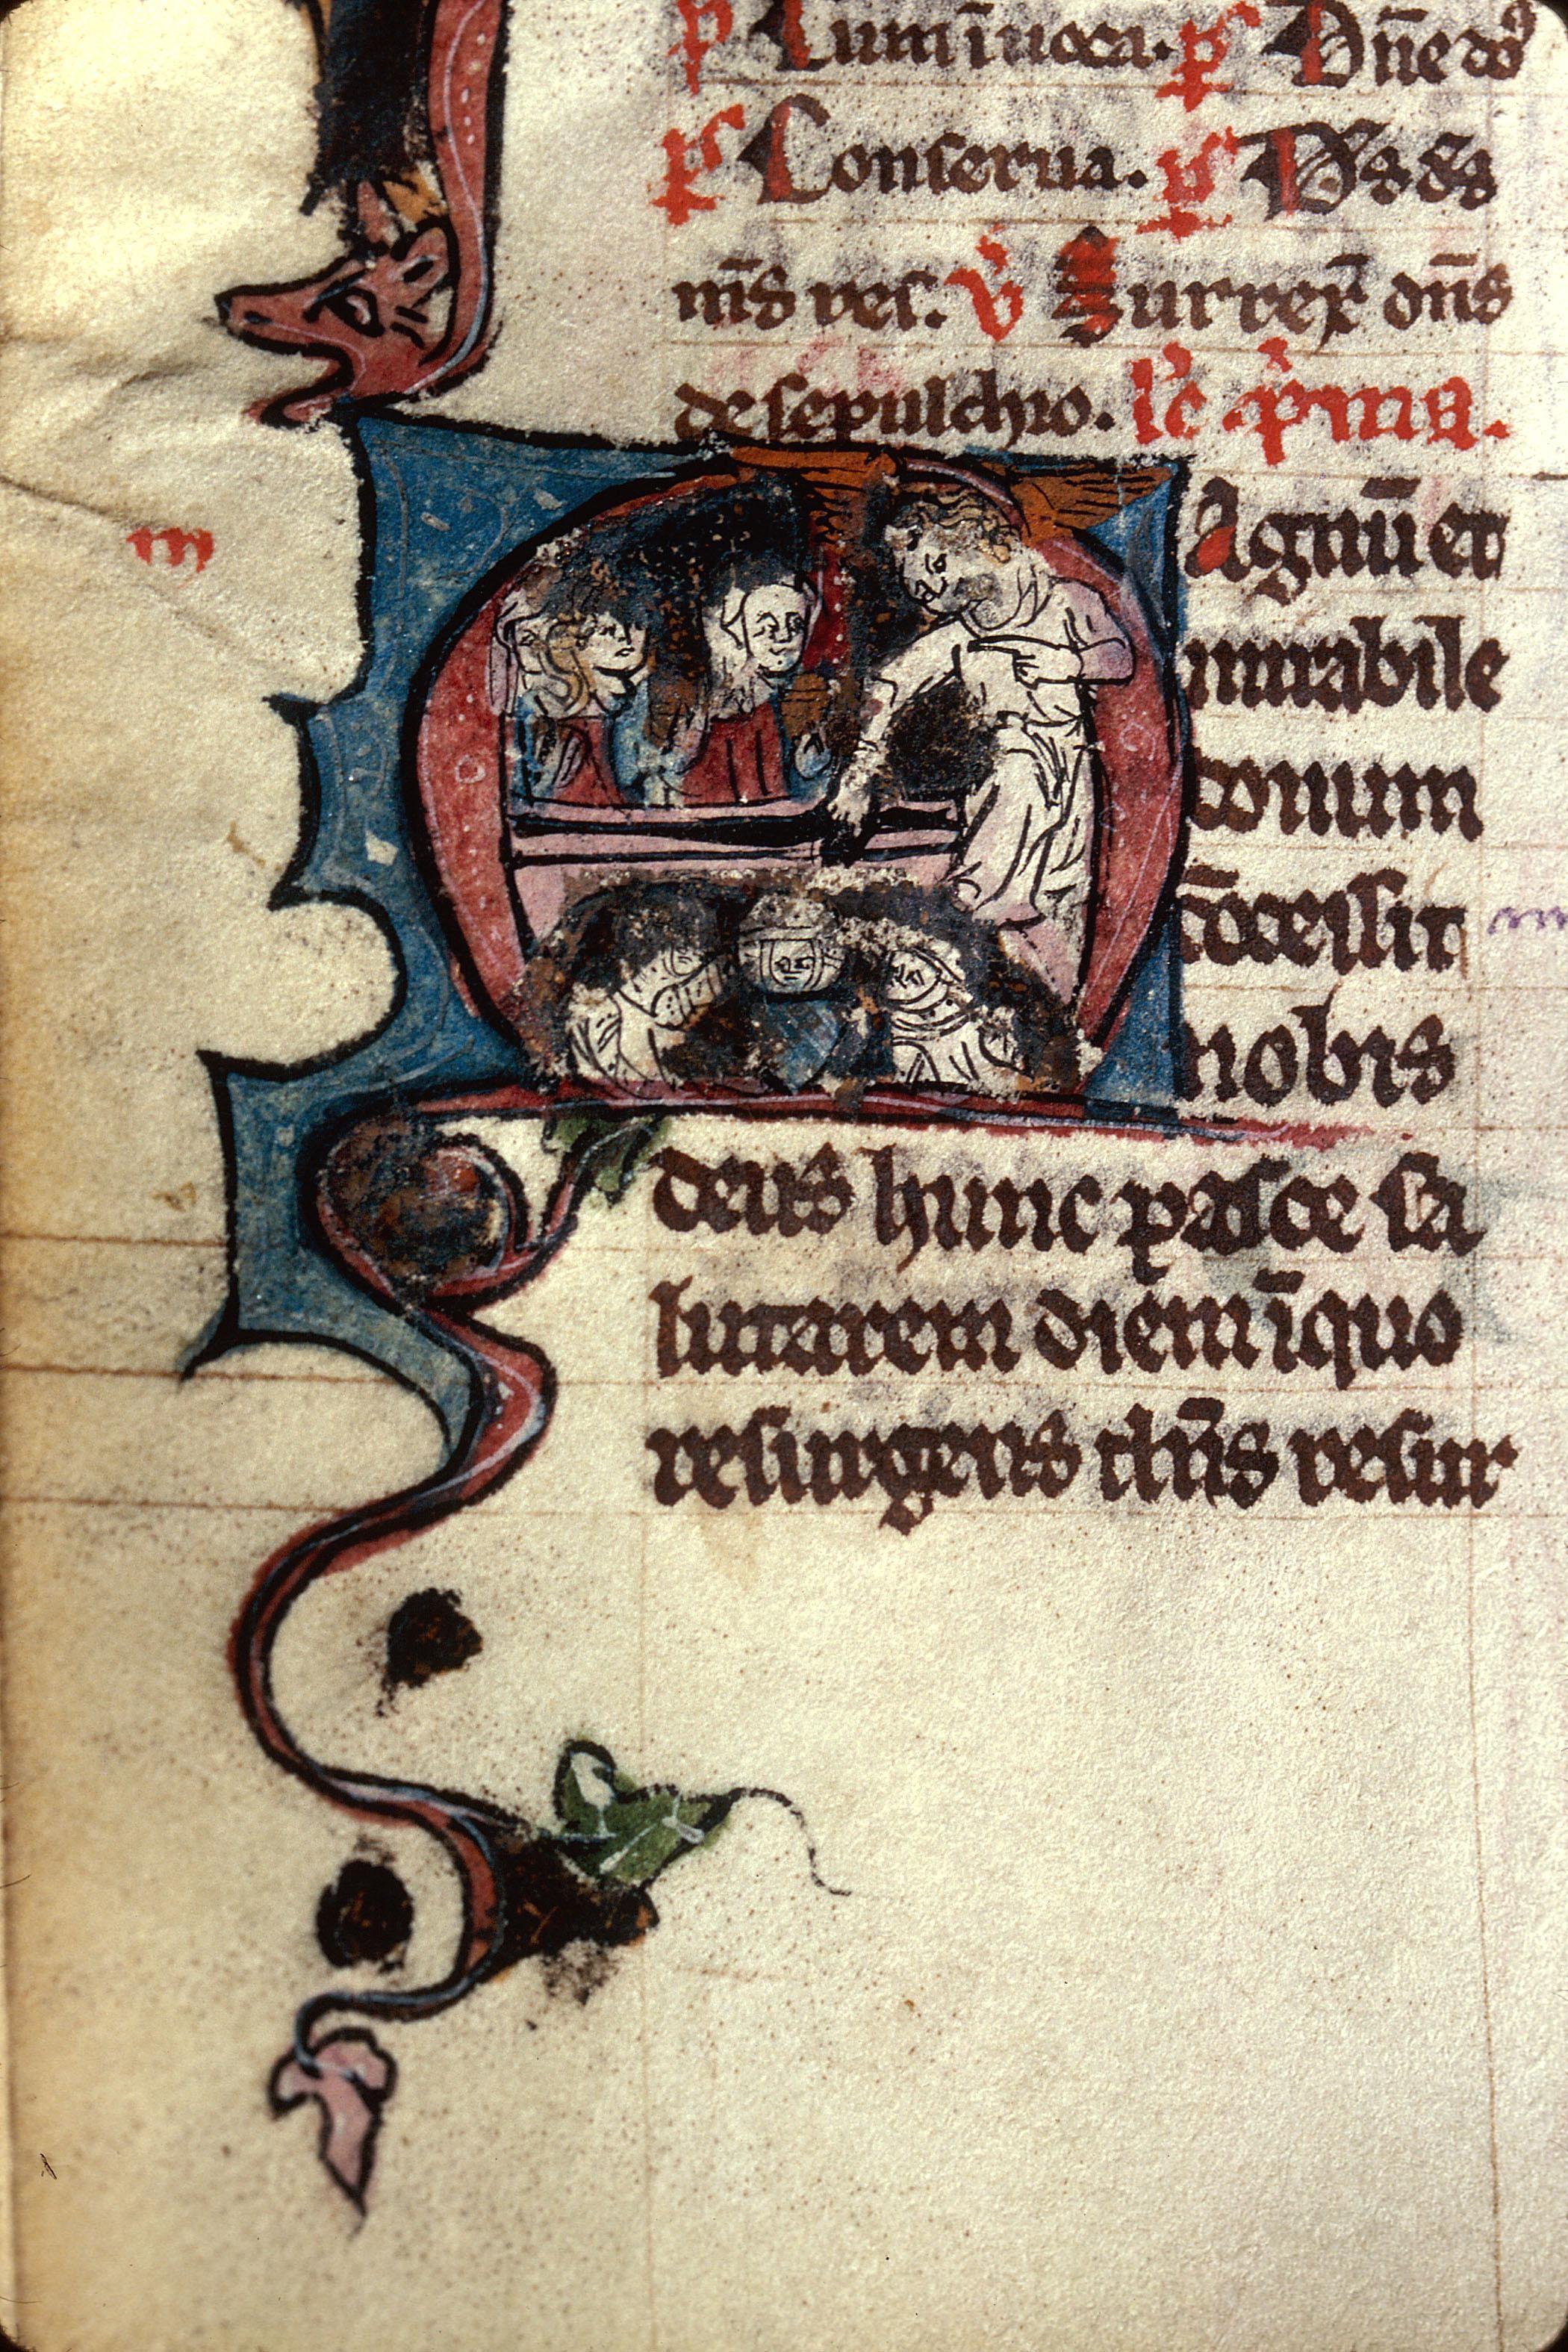 p̄ Cum īuoca. p̄s Dn̄e dꝰ
p̄s Conserua. p̄s Ds ds
m̄s res. v̉ Surrex̄ dn̄s
de sepulchro. lc̄ p̄ma.
m
Agnū et
mirabile
donum
cōcessit
nobis
deus hunc pasce sa
lutarem diem īquo
resurgens chr̄s resur